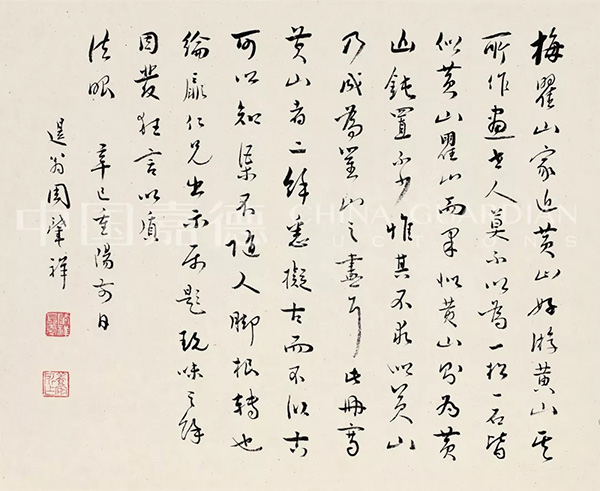 梅瞿山家近黄山好游黄山其
所作畫世人莫不以為一松一石皆
似黄山瞿山而果似黄山則為黄
山鈍置不少惟其不求似黄山
乃成為瞿山之畫耳此冊寫
黄山者二餘悉擬古而不似古
可以知渠不隨人脚根轉也
綸扉仁兄出示屬題玩味之餘
因發狂言以質
法眼 辛巳重陽前日
退翁周肇祥
中国嘉德
CHINA GUARDIAN
AUCTIONS